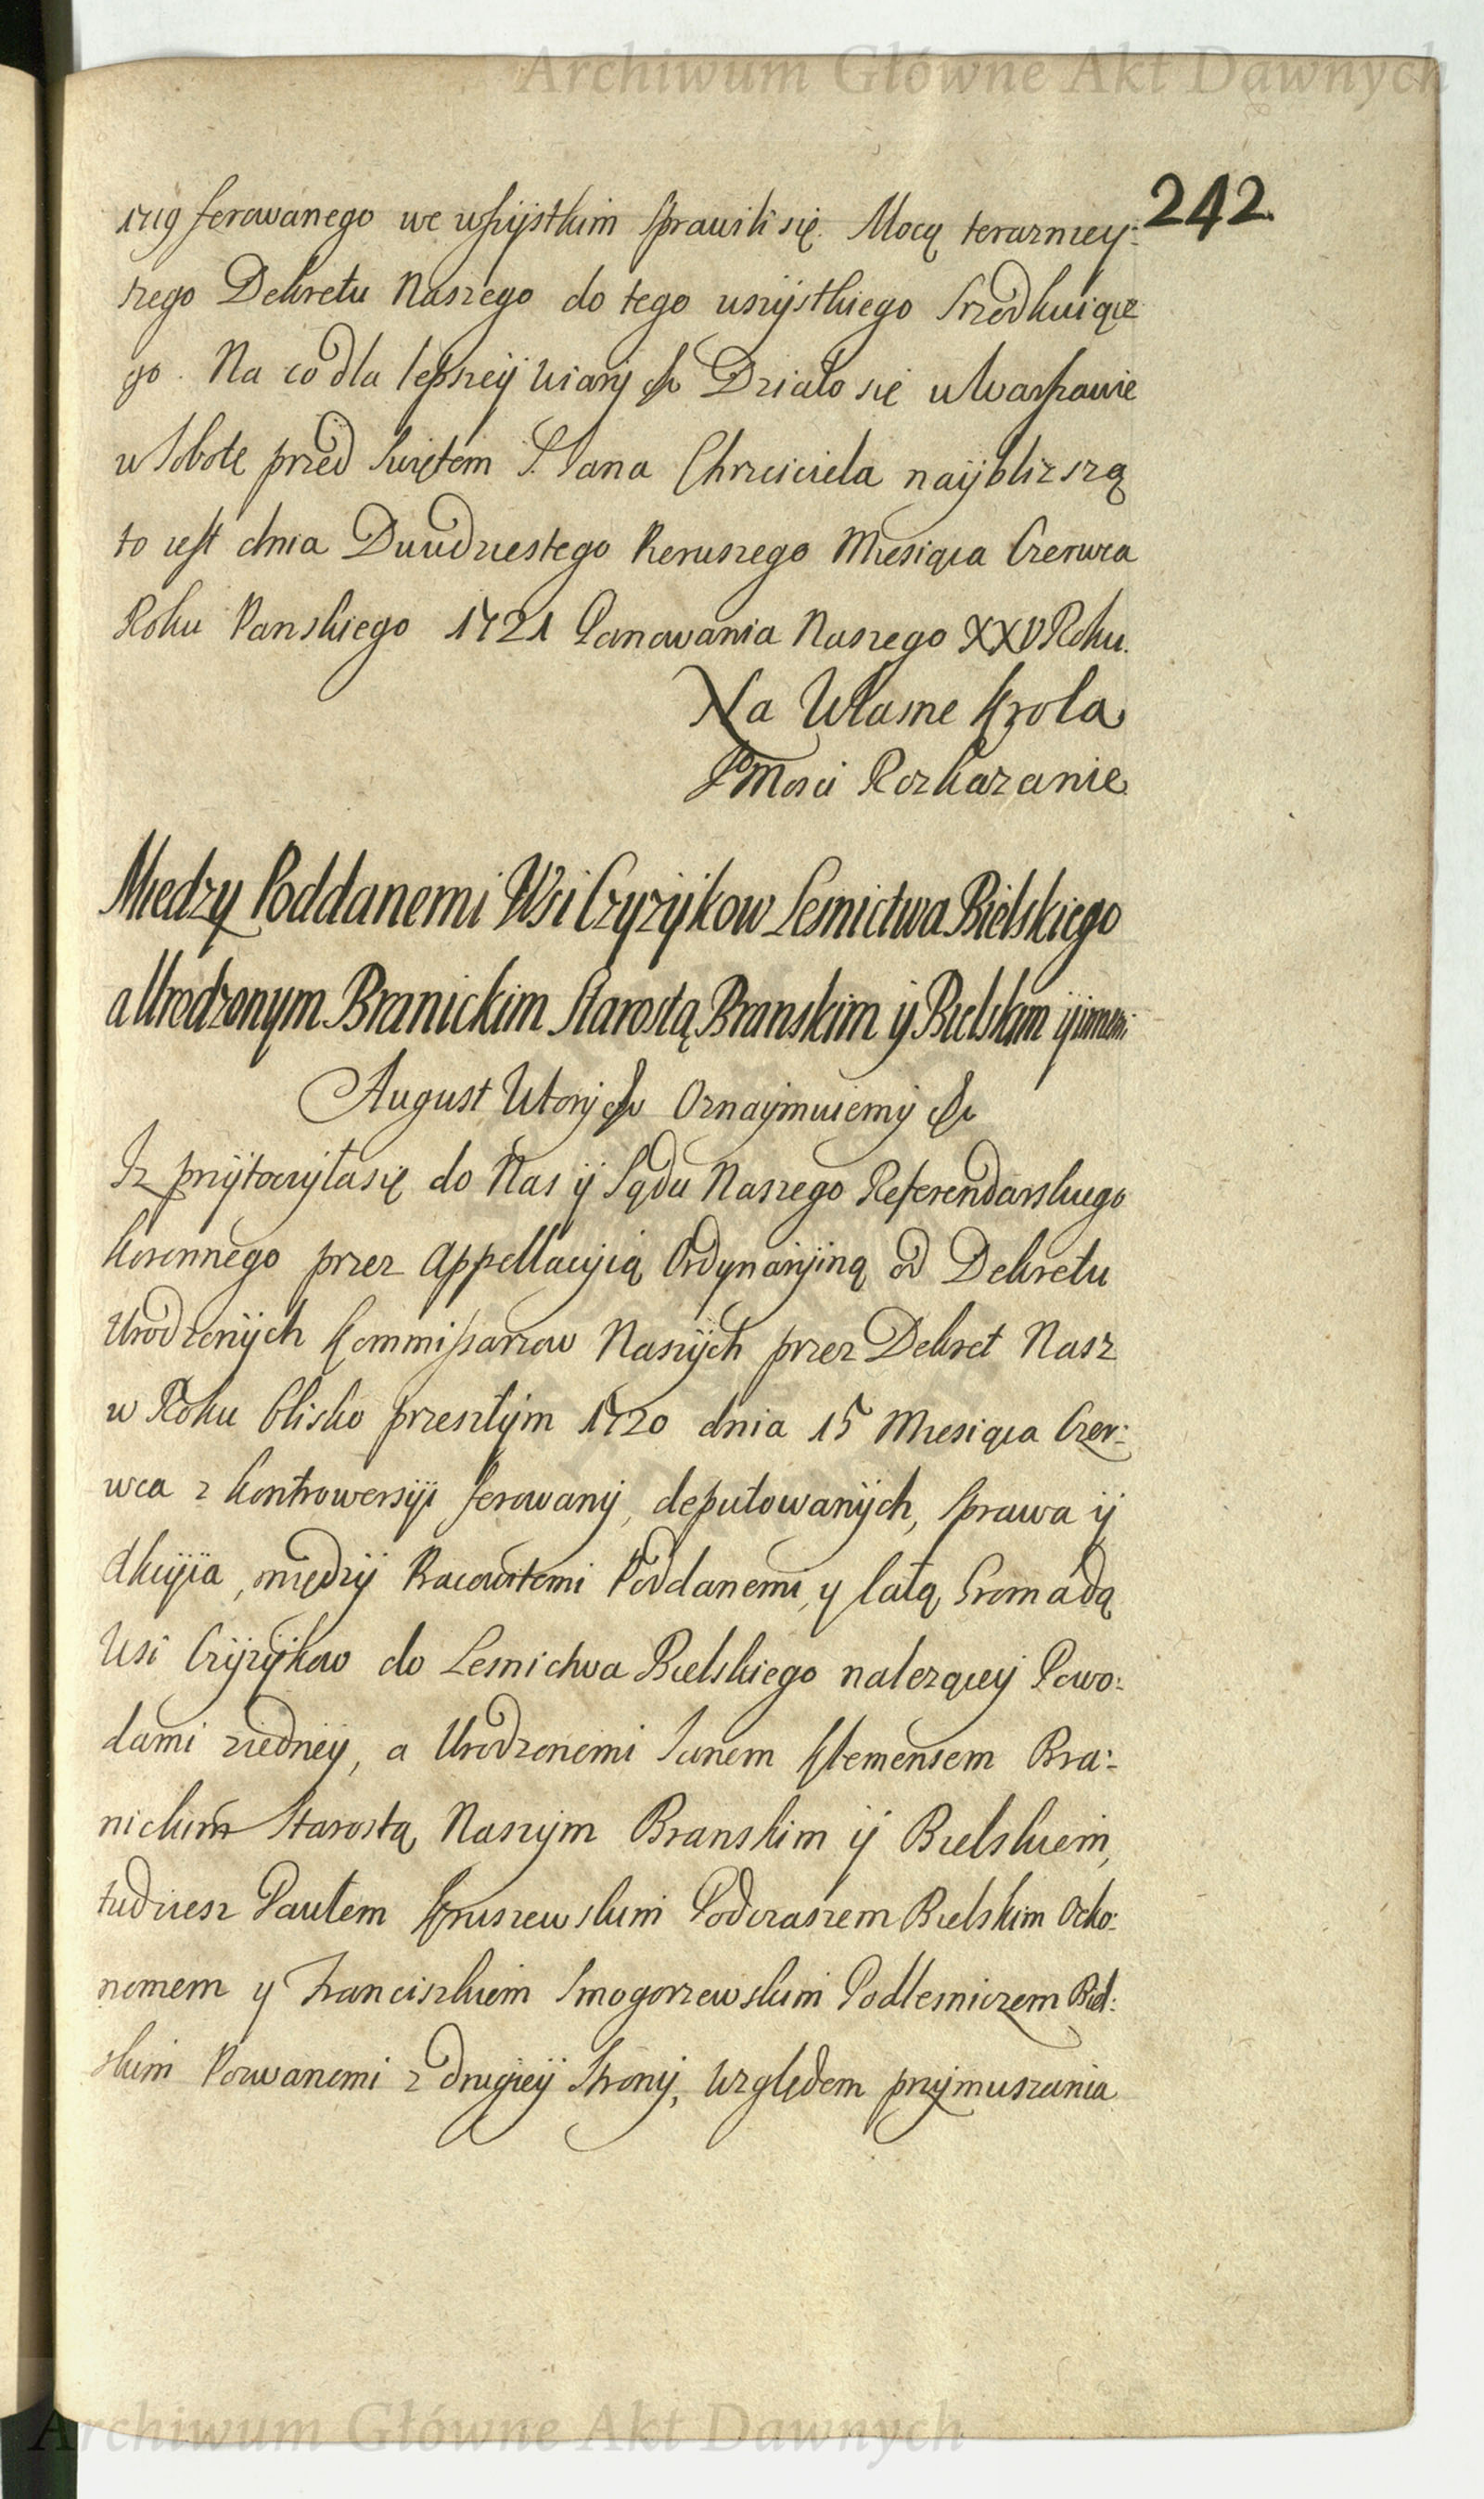 Archiwum Główne Akt Dawnych
242.
1719 ferowanego we wszystkim sprawili się. Mocą terazniey:
szego Dekretu Naszego do tego wszystkiego
go. Na co dla lepszey wiary &c Działo się w Warszawie
w Sobotę przed Swiętem S. Jana Chrzciciela naybliższą
to iest dnia Dwudziestego Pierwszego Miesiąca Czerwca
Roku Panskiego 1721 Panowania Naszego XXV Roku.
Na Własne Krola
JoMosci Rozkazanie
Miedzy Poddanemi Wsi Czyzykow Lesnictwa Bielskiego
a Urodzonym Branickim Starostą Branskim ÿ Bielskim ÿ innemi
August Wtory &c Oznaymuiemy &c
Iz przytoczyła się do Nas ÿ Sądu Naszego Referendarskiego
Koronnego przez Appellacyią Ordynaryiną od Dekretu
Urodzonych Kommissarzow Naszych przez Dekret Nasz
w Roku blisko przeszłym 1720 dnia 15 Miesiąca Czer:
wca z kontrowersyi ferowany, deputowanych, sprawa ÿ
Akcyia, między Pracowitemi Poddanemi, y całą Gromadą
Wsi Czyzykow do Lesnictwa Bielskiego nalezącey Powo:
dami ziedney, a Urodzonemi Janem Klemensem Bra:
nickim Starostą Naszym Branskim ÿ Bielskiem,
tudziesz Pawłem Kruszewskim Podczaszem Bielskim Oeko:
nomem y Franciszkiem Smogorzewskim Podlesniczem Biel:
skim Pozwanemi z drugiey Strony, względem przymuszania
Archiwum Główne Akt Dawnych